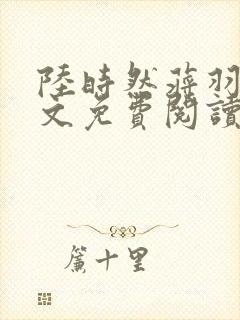 陸時然蒋羽
文免費閱讀
簾十里